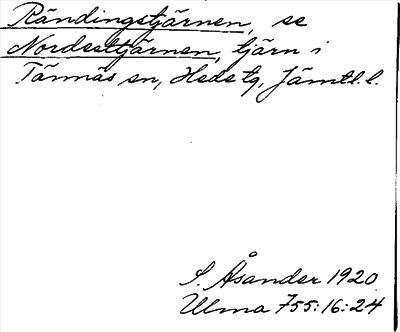 Rändingstjärnen, se
Nordesttjärnen, tjärn i
Tännäs sn, Hede tg, Jämtl. l.
S. Åsander 1920
Ulma 755:16:24